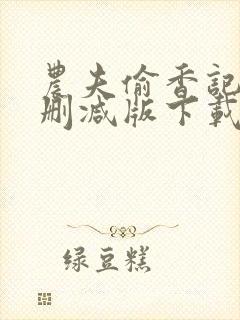 農夫偷香記
刪減版下載
绿豆糕